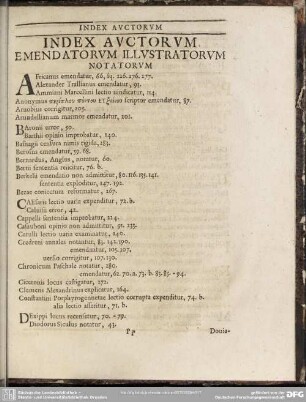 INDEX AVCTORVM
INDEX AVCTORVM
EMENDATORVM ILLVSTRATORVM
NOTATORVM
AFricanus emendatur, 66, 84. 226. 276. 277.
Alexander Trallianus emendatur, 93.
Ammiani Marcellini lectio vindicatur, 114.
Anonymus scriptor emendatur, 87.
Arnobius corrigitur, 205.
Arundellianum marmor emendatur, 202.
BAronii error, 50.
Barthii opinio improbatur, 240.
Basnagii censura nimis rigida, 183.
Berosus emendatur, 59. 68.
Bernardus, Anglus, notatur, 60.
Bertii sententia reiicitur, 76. b.
Berkelii emendatio non admittitur, 80. 116. 135. 141.
sententia exploditur, 147. 192.
Bezae coniectura reformatur, 167.
CAesaris lectio varia expenditur, 72. b.
Calvisii error, 42.
Cappelli sententia improbatur, 224.
Casauboni opinio non admittitur, 51. 235.
Catulli lectio varia examinatur, 240.
Cedreni annales notantur, 83. 142. 190.
emendantur, 105. 107.
versio corrigitur, 107. 130.
Chronicum Paschale notatur, 280.
emendatur, 62. 70. a. 73. b. 83. 85. - 94.
Ciceronis locus castigatur, 271.
Clemens Alexandrinus explicatur, 164.
Constantini Porphyrogennetae lectio corrupta expenditur, 74. b.
alia lectio asseritur, 71. b.
DExippi locus recensetur, 70. - 79.
Diodorus Siculus notatur, 43.
Pp